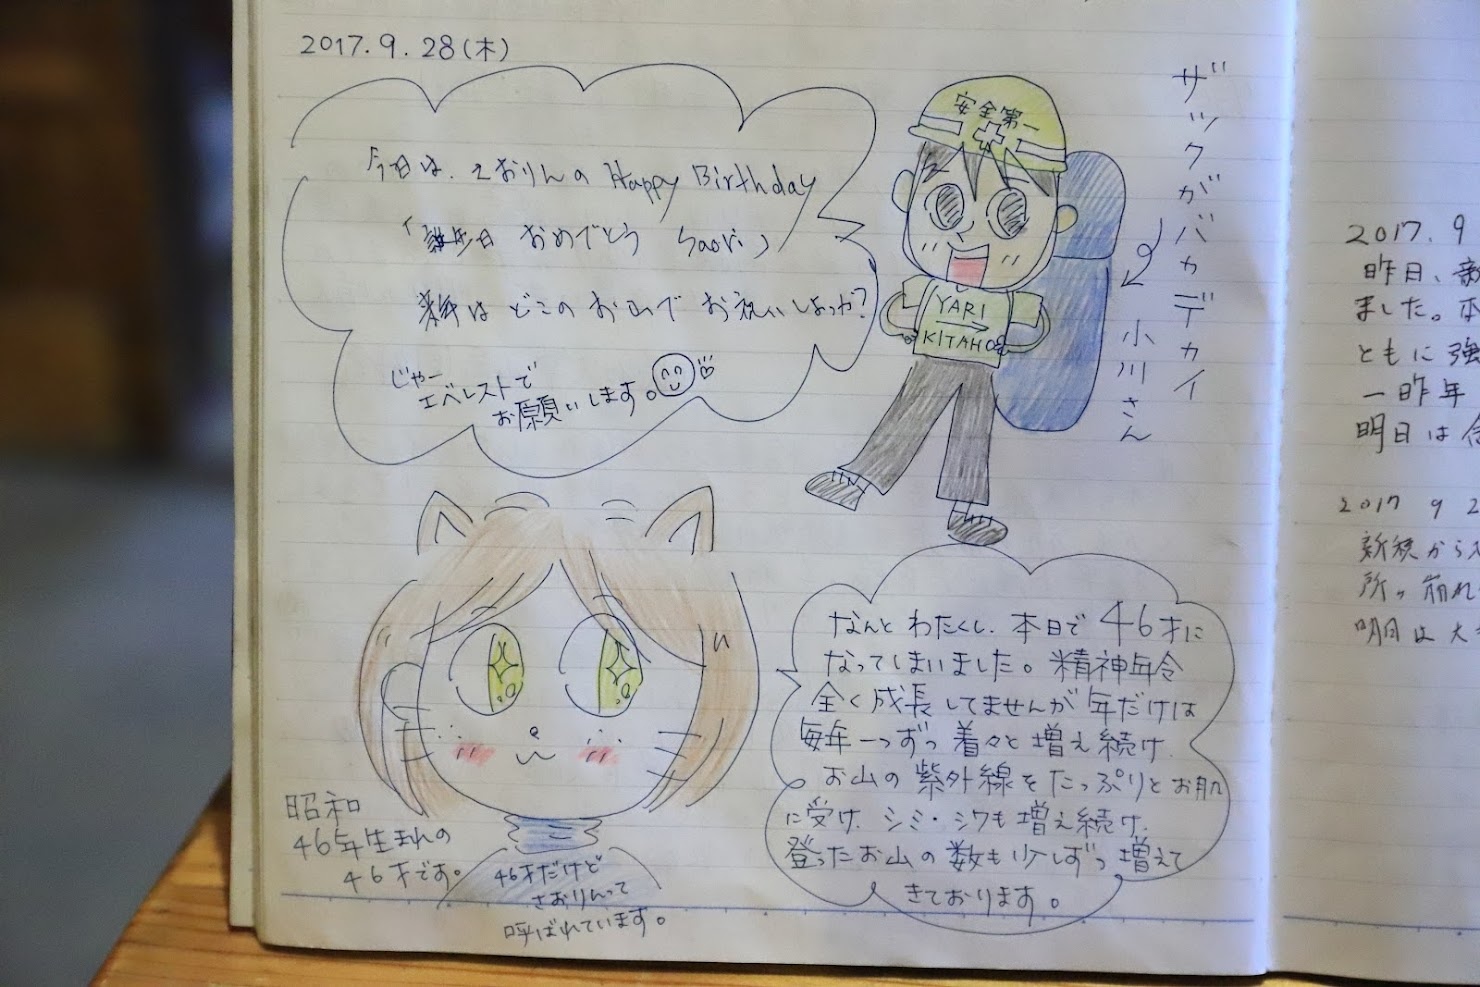 2017.9.28(木)
今日は、さおりんの Happy Birthday
「誕生日 おめでとう Saori」
来年は どこの お山で お祝いしよっか?
じゃー
エベレストで
お願いします。
安全第一
YARI
KITAHO
ザックがバカデカイ
小川さん
なんと わたくし、本日で 46才に
なってしまいました。精神年令
全く成長してませんが年だけは
毎年一つずつ着々と増え続け
お山の紫外線をたっぷりとお肌
に受け、シミ・シワも増え続け、
登ったお山の数も少しずつ増えて
きております。
昭和
46年生まれの
46才です。
46才だけど
さおりんって
呼ばれています。
2017.9
昨日、新
ました。本
ともに強
一昨年
明日は
2017 9 2
新穂から
所々崩れ
明日は大